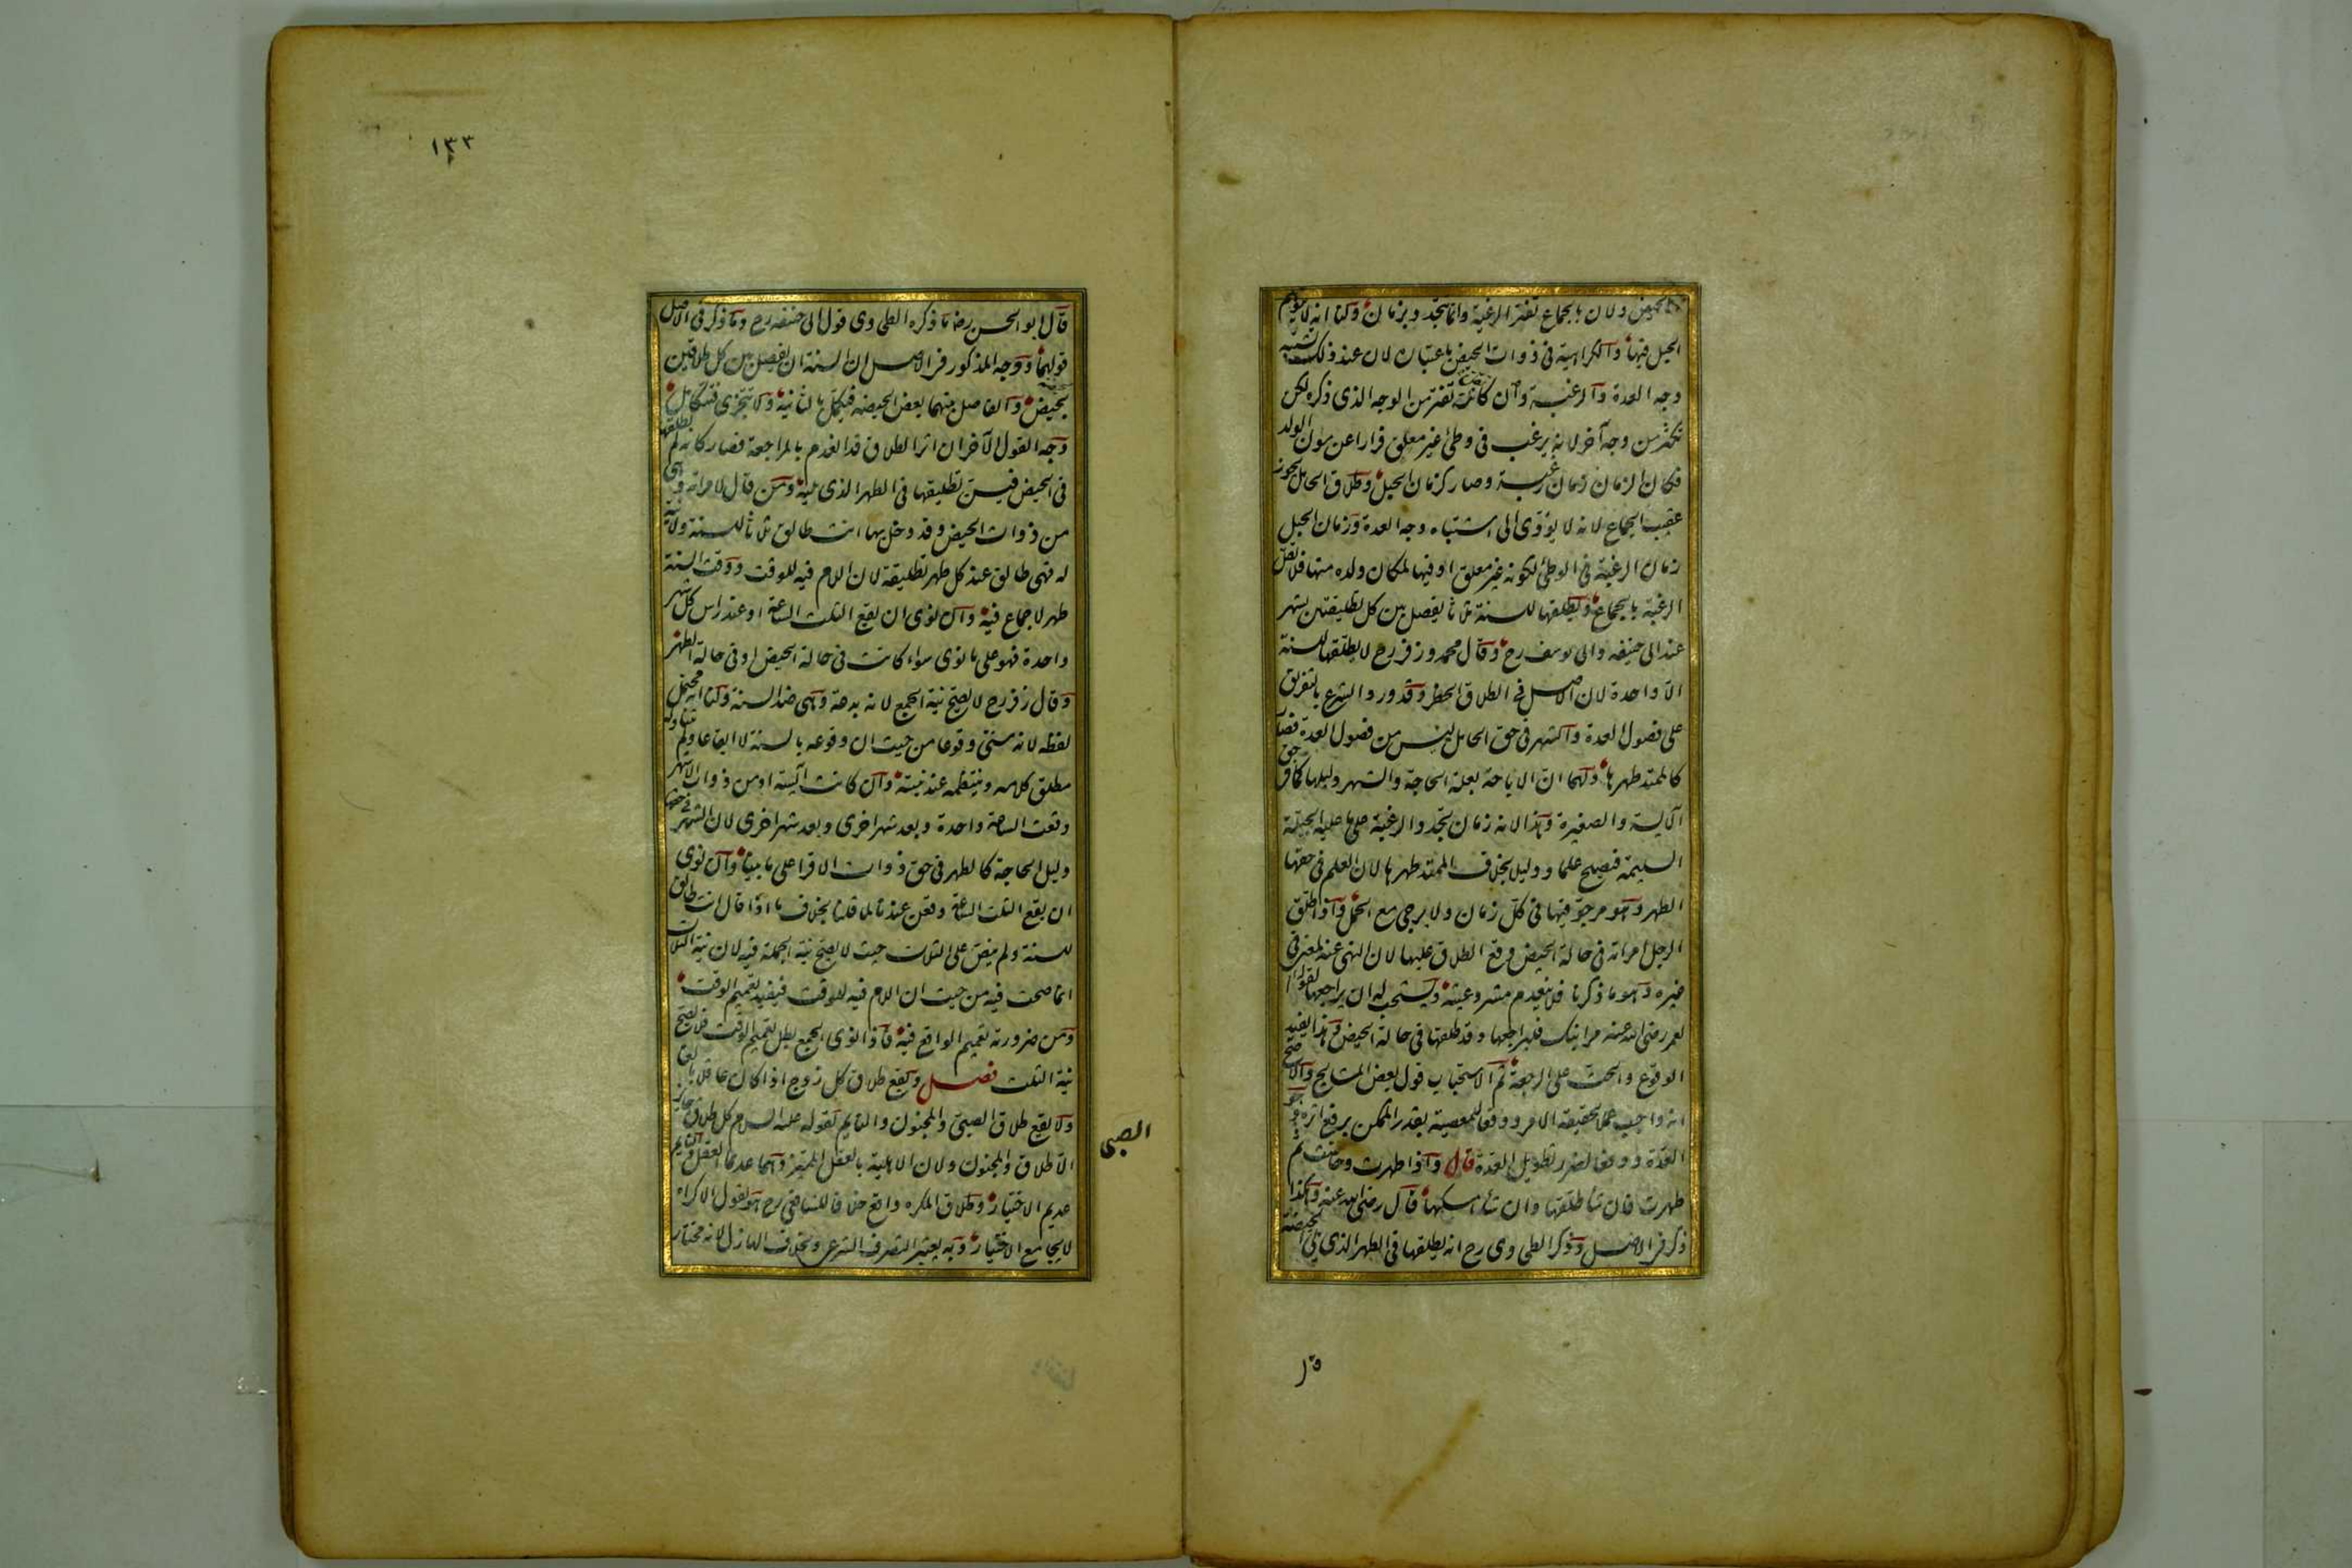 بالحيض ولان بالجماع تفتر الرغبة وانما تتجدد بزمان ولنا انه لا يتوهم
الحبل فيها والكراهية فى ذوات الحيض باعتباره لان عند ذلك يشتبه
وجه العدة والرغبة وان كانت تفتر من الوجه الذى ذكر لكن
تكثر من وجه آخر لانه يرغب فى وطئ غير معلق فرارا عن مؤن الولد
فكان الزمان زمان رغبة وصار كزمان الحبل وطلاق الحامل يجوز
عقيب الجماع لانه لا يؤدى الى اشتباه وجه العدة وزمان الحبل
زمان الرغبة فى الوطئ لكونه غير معلق او فيها لمكان ولده منها فلا تقل
الرغبة بالجماع ويطلقها للسنة ثلثا يفصل بين كل تطليقتين بشهر
عند ابى حنيفه وابى يوسف رح وقال محمد وزفر رح لا يطلقها للسنة
الا واحدة لان الاصل فى الطلاق الحظر وقد ورد الشرع بالتفريق
على فصول العدة والشهر فى حق الحامل ليس من فصول العدة فصار
كالممتد طهرها ولهما ان الاباحة بعلة الحاجة والشهر دليلها كما فى حق
الآيسة والصغيرة وهذا لانه زمان تجدد الرغبة على ما عليه الجبلة
السليمة فيصلح علما ودليلا بخلاف الممتد طهرها لان العلم فى حقها
الطهر وهو مرجو فيها فى كل زمان ولا يرجى مع الحبل واذا طلق
الرجل امراته فى حالة الحيض وقع الطلاق عليها لان النهى عنه لمعنى فى
غيره وهو ما ذكرنا فلا ينعدم مشروعيته ويستحب له ان يراجعها لقوله
لعمر رضى الله عنه مر ابنك فليراجعها وقد طلقها فى حالة الحيض وهذا يفيد
الوقوع والحث على الرجعة ثم الاستحباب قول بعض المشايخ والاصح
انه واجب عملا بحقيقة الامر ورفعا للمعصية بقدر الممكن برفع اثره وهو
العدة ودفعا لضرر تطويل العدة قال واذا طهرت وحاضت ثم
طهرت فان شا طلقها وان شا امسكها قال رضى الله عنه وهكذا
ذكر فى الاصل وذكر الطحاوى رح انه يطلقها فى الطهر الذى يلى الحيضة
قا
١٣٣
قال ابو الحسن رض ما ذكره الطحاوى قول ابى حنيفه رح وما ذكر فى الاصل
قولهما ووجه المذكور فى الاصل ان السنة ان يفصل بين كل طلاقين
بحيضة والفاصل بينهما بعض الحيضة فيكمل بالثانية ولا تتجزى فتتكامل
وجه القول الآخر ان اثر الطلاق قد انعدم بالمراجعة فصار كانه لم يطلقها
فى الحيض فيسن تطليقها فى الطهر الذى يليه ومن قال لامراته وهى
من ذوات الحيض وقد دخل بها انت طالق ثلثا للسنة ولا نية
له فهى طالق عند كل طهر تطليقة لان اللام فيه للوقت ووقت السنة
طهر لا جماع فيه وان نوى ان يقع الثلث الساعة او عند راس كل شهر
واحدة فهو على ما نوى سواء كانت فى حالة الحيض او فى حالة الطهر
وقال زفر رح لا يصح نية الجمع لانه بدعة وهى ضد السنة ولنا انه محتمل
لفظه لانه سنى وقوعا من حيث ان وقوعه بالسنة لا ايقاعا ولم يتناوله
مطلق كلامه وينتظمه عند نيته وان كانت آيسة او من ذوات الاشهر
وقعت الساعة واحدة وبعد شهر اخرى وبعد شهر اخرى لان الشهر فى حقها
دليل الحاجة كالطهر فى حق ذوات الاقرا على ما بينا وان نوى
ان يقع الثلث الساعة وقعن عندنا لما قلنا بخلاف ما اذا قال انت طالق
للسنة ولم ينص على الثلث حيث لا يصح نية الجملة فيه لان نية الثلاث
انما صحت فيه من حيث ان اللام فيه للوقت فيفيد تعميم الوقت
ومن ضرورته تعميم الواقع فيه فاذا نوى الجمع بطل تعميم الوقت فلا يصح
نية الثلث فصل ويقع طلاق كل زوج اذا كان عاقلا بالغا
ولا يقع طلاق الصبى والمجنون والنايم لقوله عليه السلام كل طلاق جايز
الا طلاق والمجنون ولان الاهلية بالعقل المميز وهما عديما العقل والنايم
الصبى
عديم الاختيار وطلاق المكره واقع خلافا للشافعى رح هو يقول الاكراه
لا يجامع الاختيار وبه يعتبر التصرف الشرعى بخلاف الهازل لانه مختار